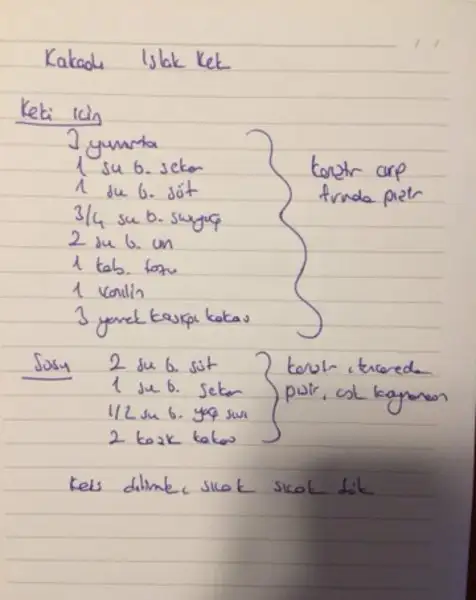 Kakaolu Islak Kek
Keki için
3 yumurta
1 su b. şeker
1 su b. süt
3/4 su b. sıvıyağ
2 su b. un
1 kab. tozu
1 vanilin
3 yemek kaşığı kakao
karıştır çırp
fırında pişir
Sosu
2 su b. süt
1 su b. şeker
1/2 su b. yağ sıvı
2 kaşık kakao
karıştır, tencerede
pişir, çok kaynamasın
Keki dilimle, sıcak sıcak dök